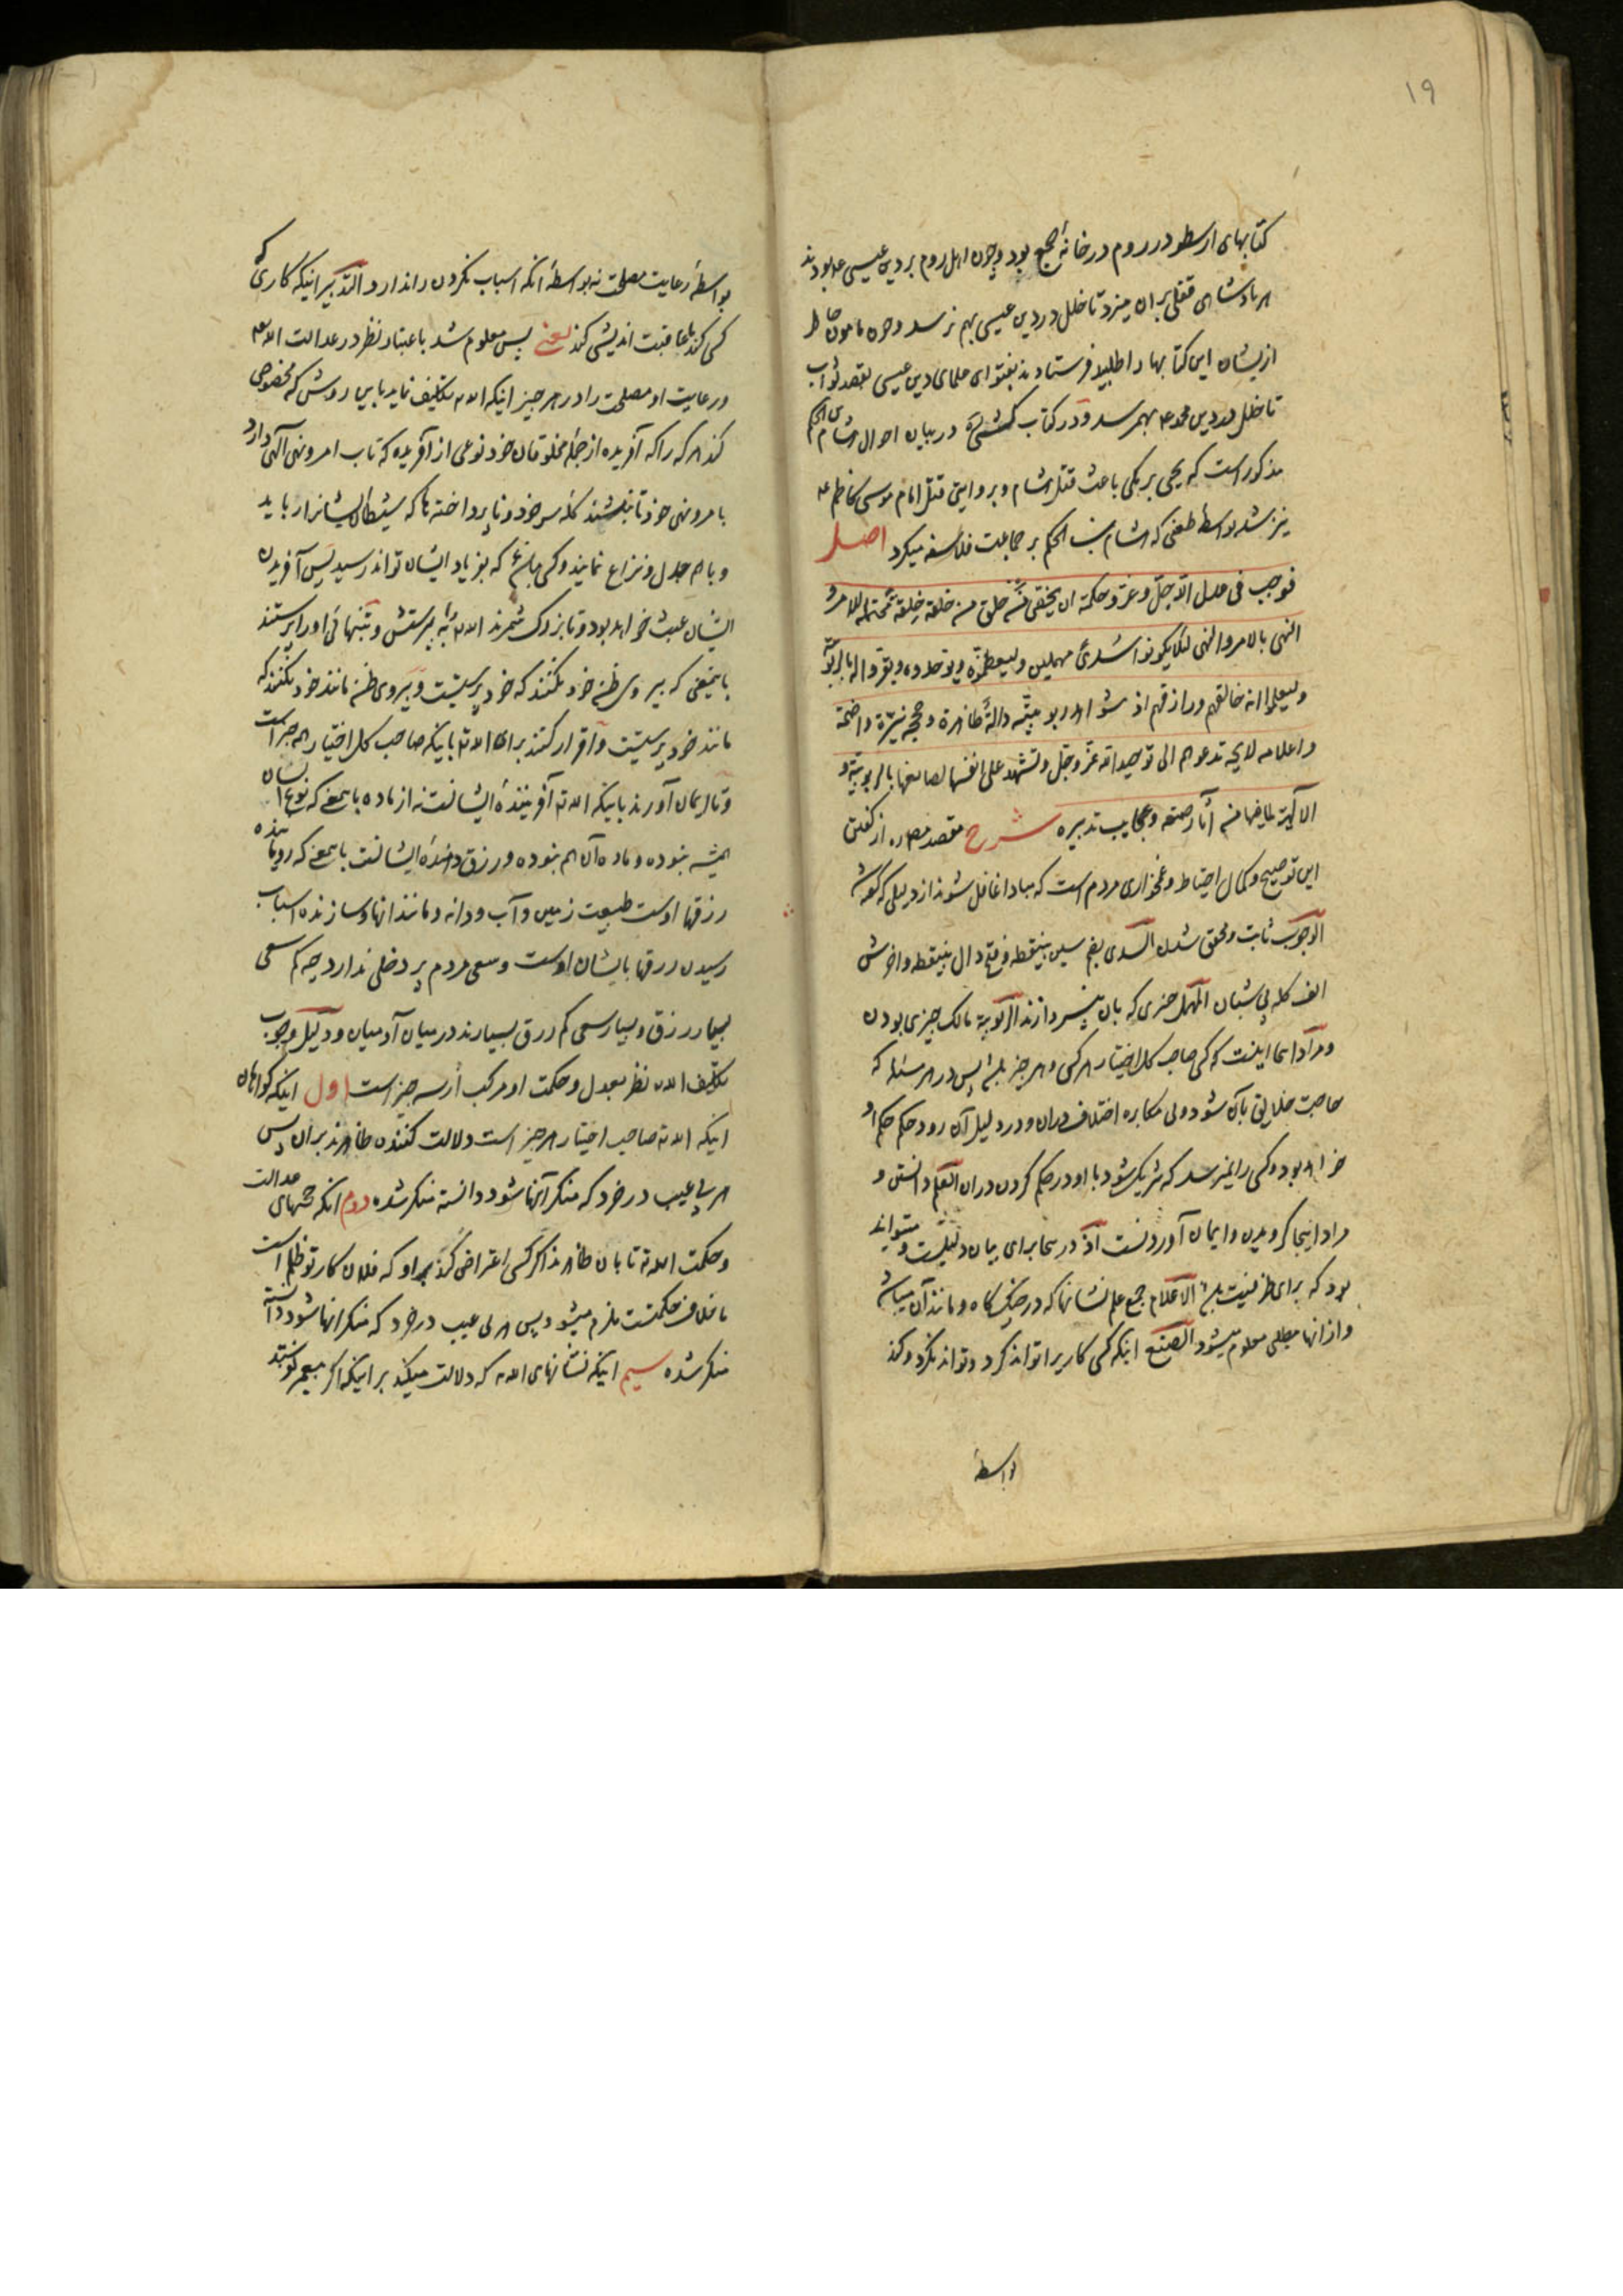 ۱۹
کتابهای ارسطو در روم در خانهٔ جمع بود و چون اهل روم بر دین عیسی ع بودند
هر پادشاهی قفلی بران میزد تا خلل در دین عیسی بهم نرسد و چون مامون خاطر
ازیشان این کتابها را طلبید فرستادند بفتوای علمای دین عیسی بقصد ثواب
تا خلل در دین محمد ع بهم رسد و در کتاب کشی در بیان احوال هشام بن الحکم
مذکور است که یحیی برمکی باعث قتل هشام و بروایتی قتل امام موسی کاظم ع
نیز شد بواسطهٔ طعنی که هشام بن الحکم بر جماعت فلاسفه میکرد اصل
فوجب فی عدل الله جل و عز و حکمته ان یخص من خلق من خلقه خلقة محتملة للامر و
النهی بالامر و النهی لئلا یکونوا سدی مهملین و لیعظموه و یوحدوه و یقروا له بالربوبیة
و لیعلموا انه خالقهم و رازقهم اذ شواهد ربوبیته دالة ظاهرة و حججه نیرة واضحة
و اعلامه لایحة تدعوهم الی توحید الله عز و جل و تشهد علی انفسها لصانعها بالربوبیة و
الالهیة لما فیها من آثار صنعه و عجایب تدبیره شرح مقصد مص ره از گفتن
این توضیح و کمال احتیاط و غمخواری مردم است که مبادا غافل شوند از دلیلی که گوشه
الوجوب ثابت و محقق شدن السدی بضم سین بینقطه و فتح دال بینقطه و اخرش
الف کله بی شبان المهمل چیزی که بان نپردازند الربوبیة مالک چیزی بودن
و مراد اینجا اینست که کسی صاحب کل اختیار هر کس و هر چیز باشد پس در هر مسئله که
حاجت خلایق بآن شود و بی مکابره اختلاف دران و در دلیل آن رود حکم حکم او
خواهد بود و کسی را نمیرسد که شریک شود با او در حکم کردن دران العلم دانستن و
مراد اینجا گرویدن و ایمان آوردنست اذ در اینجا برای بیان دلیلست و میتواند
بود که برای ظرفیت باشد الاعلام جمع علم نشانها که در جنگ گاه و مانند آن میباشد
و از انها مطلبی معلوم میشود الصنع اینکه کسی کاریرا تواند کرد و تواند نکرد و کند
بواسطهٔ
بواسطهٔ رعایت مصلحت نه بواسطهٔ آنکه اسباب نکردن را ندارد التدبیر اینکه کاری که
کسی کند با عاقبت اندیشی کند یعنی پس معلوم شد باعتبار نظر در عدالت الله تع
و رعایت او مصلحت را در هر چیز اینکه الله تع تکلیف نماید باین روش که مخصوص
کند هر که را که آفریده از جمله مخلوقات خود نوعی از آفریده که تاب امر و نهی آلهی دارد
بامر و نهی خود تا نباشند کلهٔ سر خود و ناپرداخته ها که شیطان ایشانرا رباید
و با هم جدل و نزاع نمایند و کسی نباشد که بفریاد ایشان تواند رسید پس آفریدن
ایشان عبث خواهد بود و تا بزرگ شمرند الله تع را به پرستش و بتنهائی او را پرستند
باینمعنی که پیروی ظن خود نکنند که خود پرستیست و پیروی ظن مانند خود نکنند که
مانند خود پرستیست و اقرار کنند برای الله تع باینکه صاحب کل اختیار هر چیز است
و تا ایمان آورند باینکه الله تع آفرینندهٔ ایشانست نه از ماده باینمعنی که نوع انسان
همیشه نبوده و مادهٔ آن هم نبوده و رزق دهندهٔ ایشانست باینمعنی که رویاننده
رزقها اوست طبیعت زمین و آب و دانه و مانند انها و سازنده اسباب
رسیدن رزقها بایشان اوست و سعی مردم پر دخلی ندارد چه کم سعی
بسیار رزق و بسیار سعی کم رزق بسیارند در میان آدمیان و دلیل وجوب
تکلیف الله تع نظر بعدل و حکمت او مرکب از سه چیز است اول اینکه گواهان
اینکه الله تع صاحب اختیار هر چیز است دلالت کننده ظاهرند بران پس
هر بی عیب در خرد که منکر آنها شود دانسته منکر شده دوم انکه حجتهای عدالت
و حکمت الله تع تابان ظاهرند اگر کسی اعتراض کند بر او که فلان کار تو ظلم است
یا خلاف حکمتست ملزم میشود پس هر بی عیب در خرد که منکر انها شود دانسته
منکر شده سیم اینکه نشانهای الله تع که دلالت میکند بر اینکه اگر پیغمبر